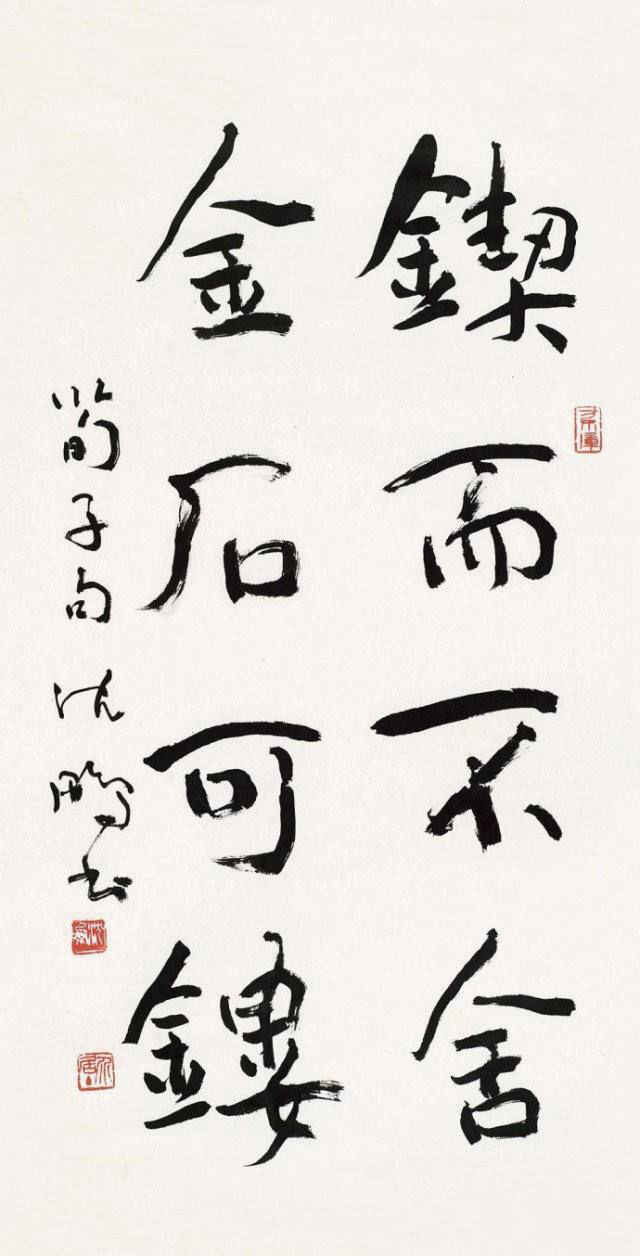 鍥而不舍
金石可鏤
荀子句 沈鵬書
沈鵬